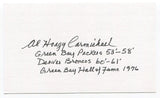 Al Hoagy Carmichael
Green Bay Packers 53'-58'
Denver Broncos 60'-61'
Green Bay Hall of Fame 1974